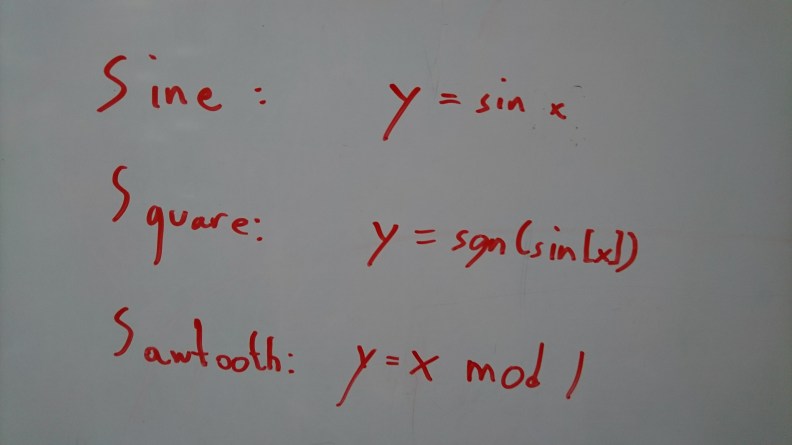 Sine: y = sin x
Square: y = sgn(sin[x])
Sawtooth: y = x mod 1